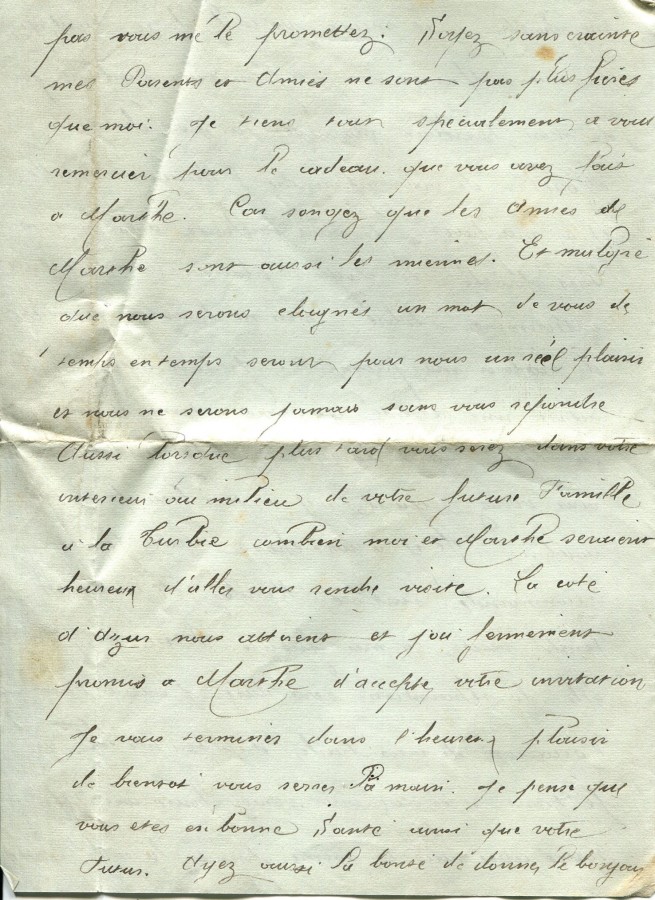 pas vous me le promettez. Soyez sans crainte
mes Parents et Amies ne sont pas plus fières
que moi. Je tiens tout spécialement a vous
remercier pour le cadeau que vous avez fais
a Marthe. Car songez que les Amies de
Marthe sont aussi les miennes. Et malgré
que nous serons eloignés un mot de vous de
temps en temps serour pour nous un réel plaisir
et nous ne serons jamais sans vous repondre
Aussi lorsque plus tard vous serez dans votre
interieur au milieu de votre future Famille
a la Turbie combien moi et Marthe seraient
heureux d'aller vous rendre visite. La cote
d'Azur nous attirent et j'ai fermement
promis a Marthe d'accepter votre invitation
Je vous termines dans l'heureux plaisir
de bientot vous serrer la main. Je pense que
vous etes en bonne Santé ainsi que votre
Futur. Ayez aussi la bonté de donner le bonjour